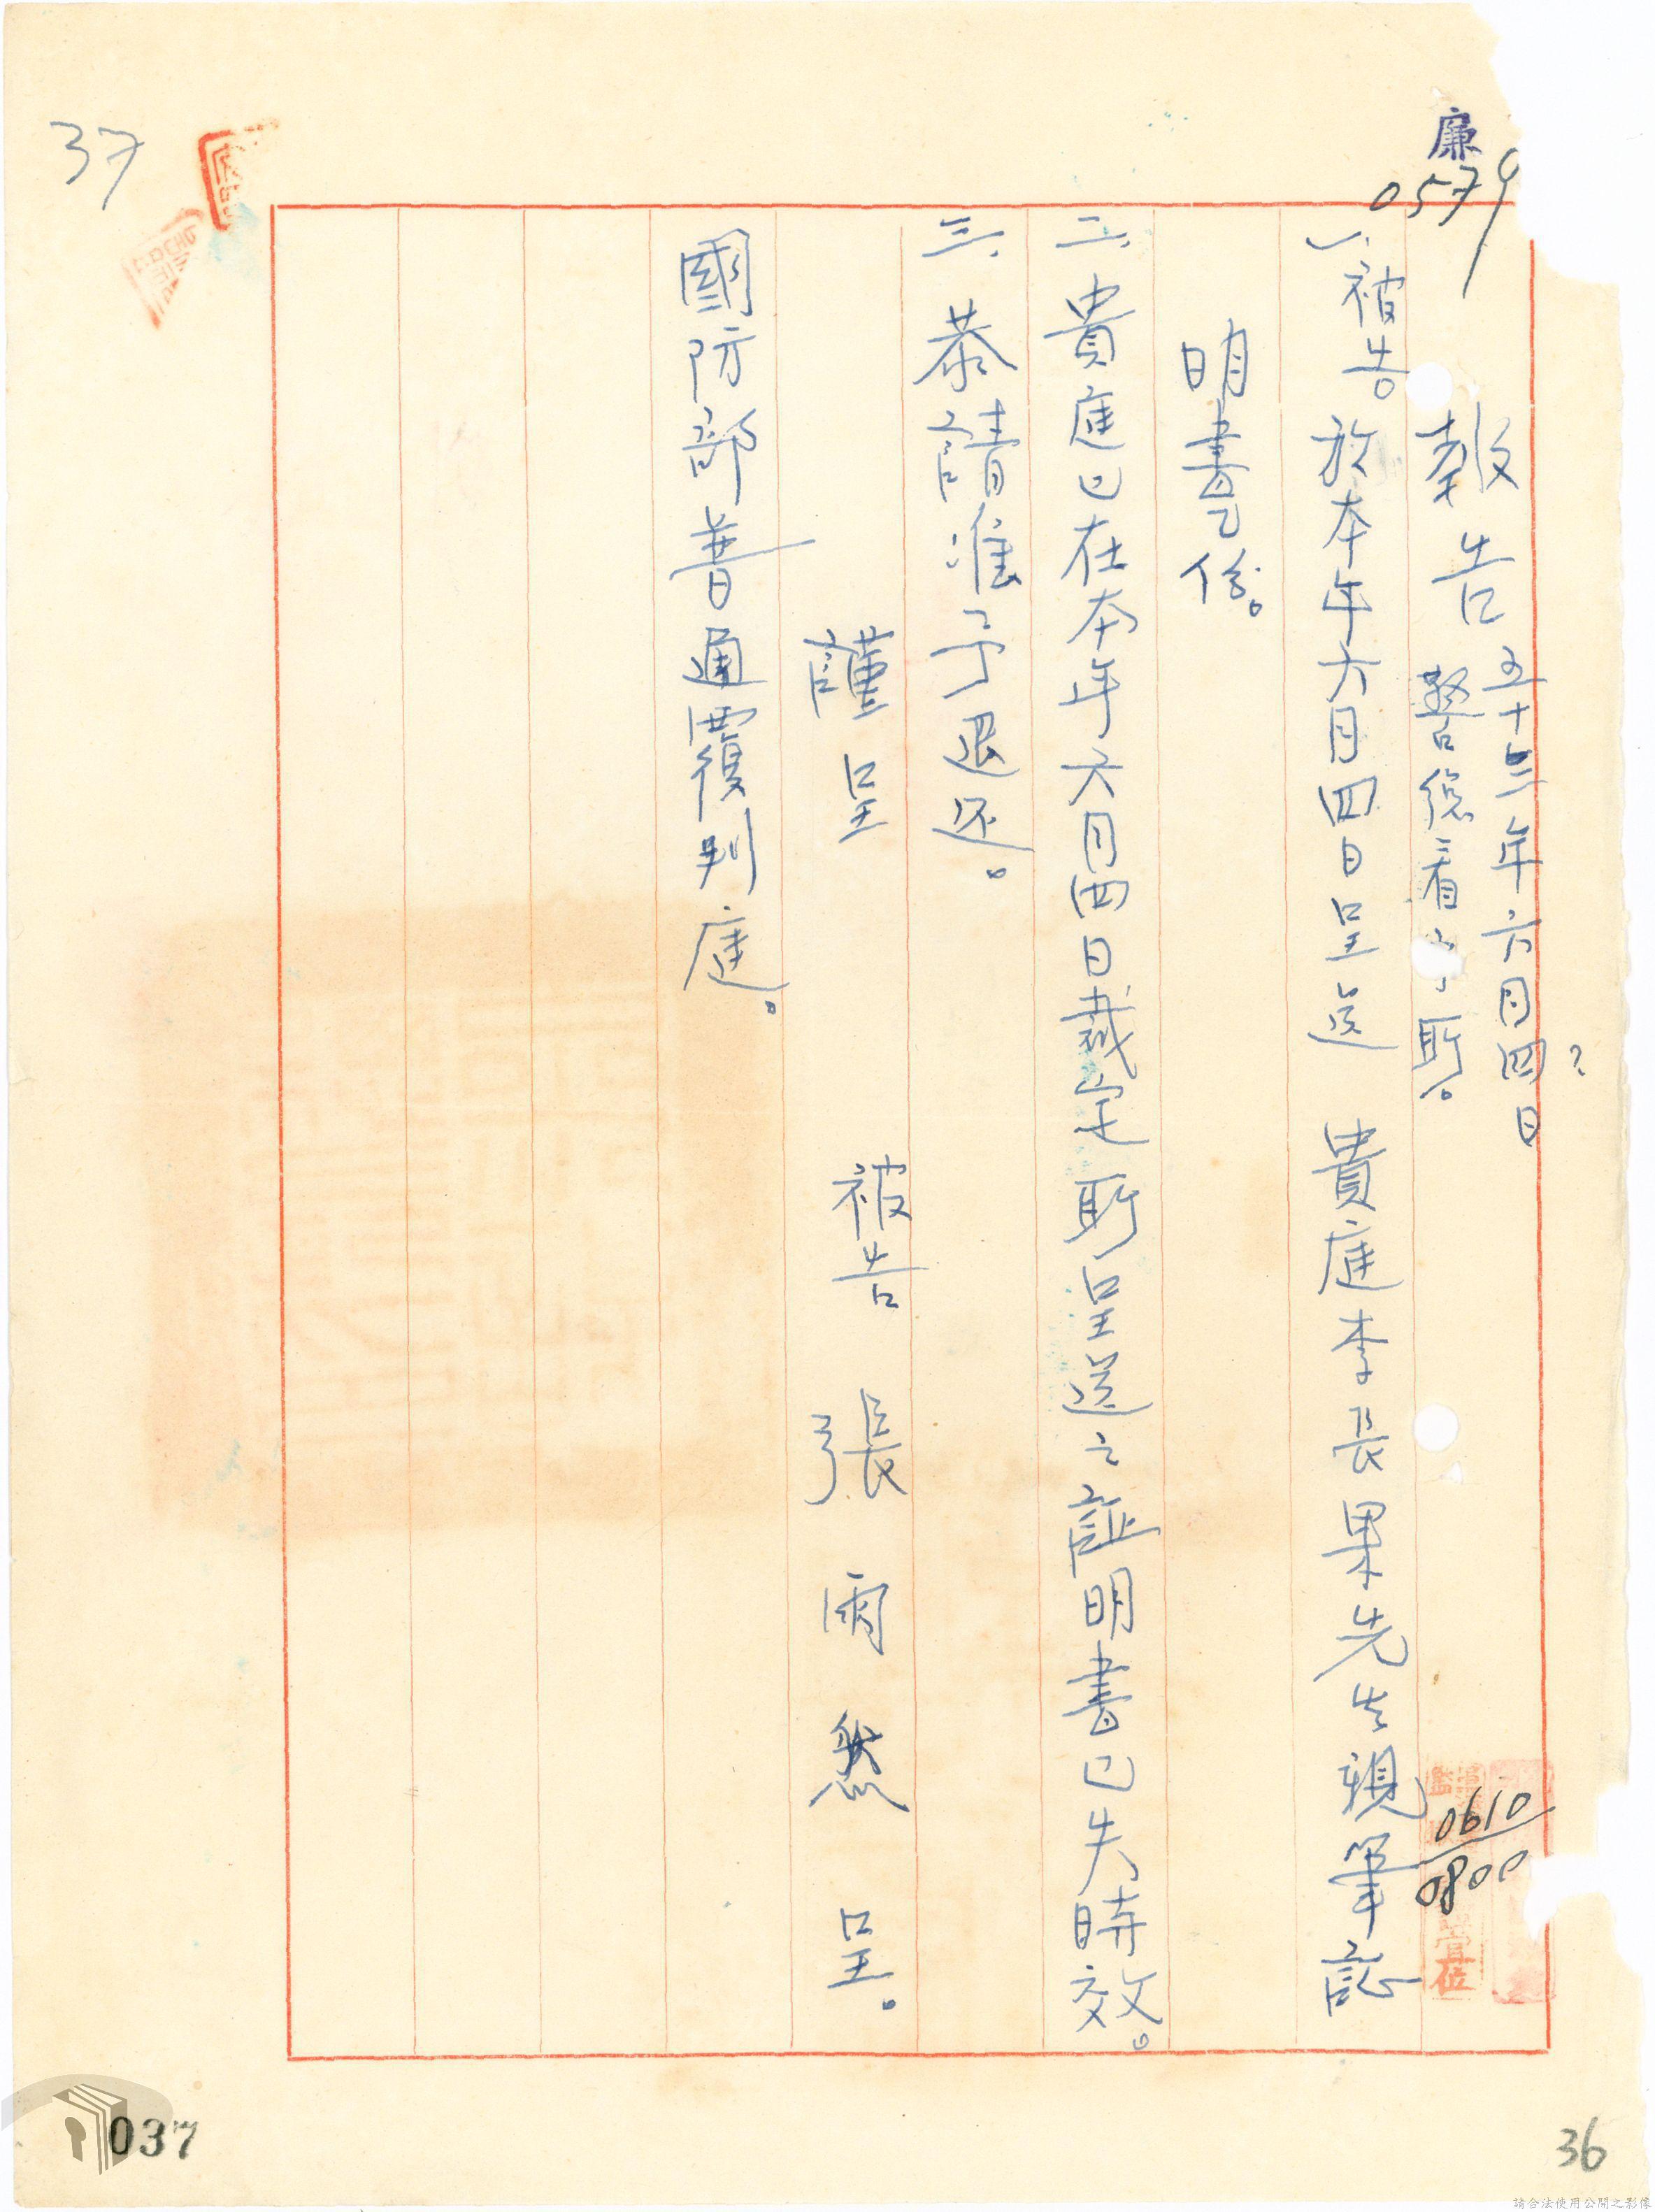 廉
0579
報告
五十三年六月四日
警總看守所。
一、被告於本年六月四日呈送 貴庭李長果先生親筆証
明書已偽。
二、貴庭已在本年六月四日裁定所呈送之証明書已失時效。
三、恭請准予退还。
謹呈
被告 張雨 呈。
國防部普通覆判庭。
0610
0800
37
36
037
請合法使用公開之影像